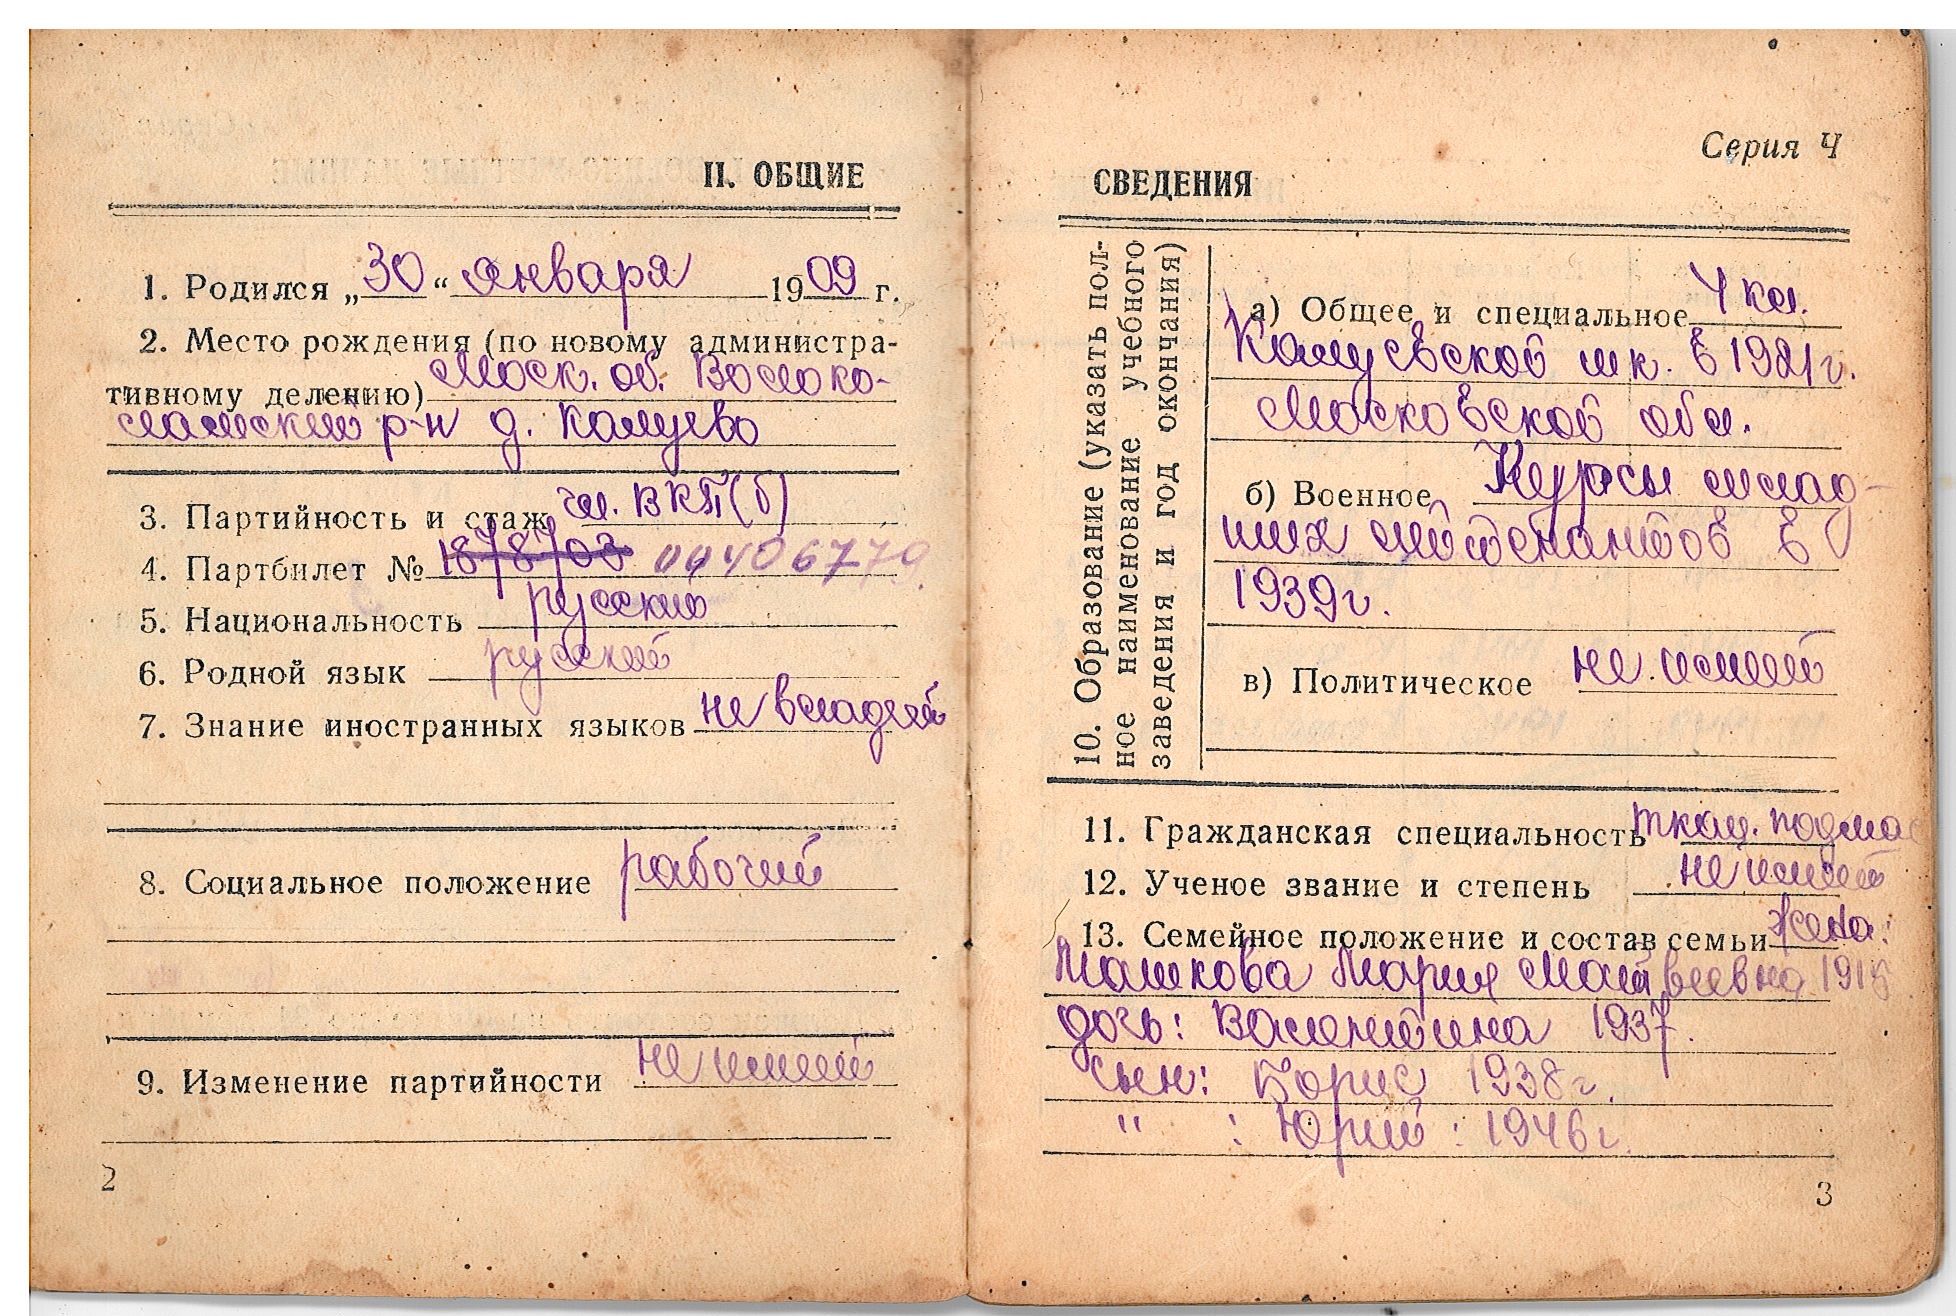 II. ОБЩИЕ
1. Родился „30“ января 1909 г.
2. Место рождения (по новому администра-
тивному делению) Моск. об. Волоко-
ламский р-н д. Калуево
3. Партийность и стаж чл. ВКП(б)
4. Партбилет № 1878703 00406779
5. Национальность русский
6. Родной язык русский
7. Знание иностранных языков не владеет
8. Социальное положение рабочий
9. Изменение партийности не имеет
2
Серия Ч
СВЕДЕНИЯ
10. Образование (указать пол-
ное наименование учебного
заведения и год окончания)
а) Общее и специальное 4 кл.
Калуевской шк. в 1921г.
Московской обл.
б) Военное Курсы млад-
ших лейтенантов в
1939г.
в) Политическое не имеет
11. Гражданская специальность ткац. подмас
12. Ученое звание и степень не имеет
13. Семейное положение и состав семьи жена:
Машкова Мария Матвеевна
дочь: Валентина 1937.
сын: Борис 1938г.
" : Юрий : 1946г.
3